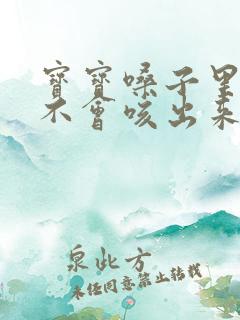 寶寶嗓子里
不會咳出來
泉此方
未经同意禁止转载